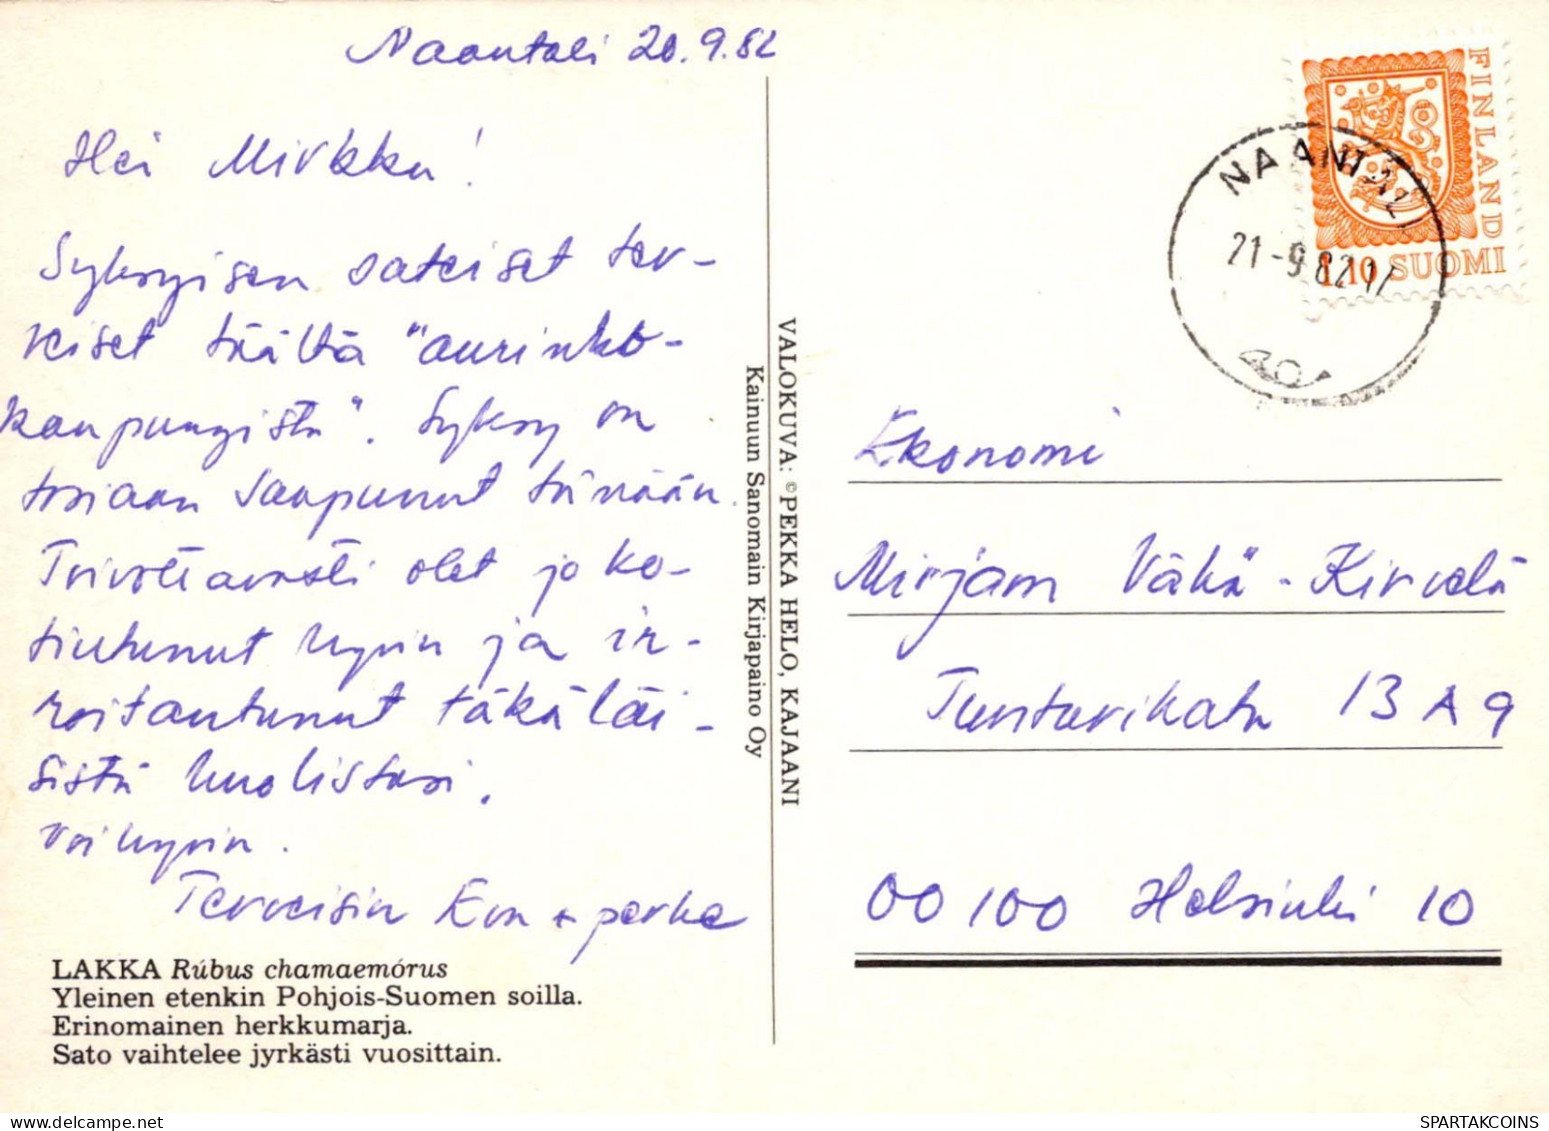 Naantali 20.9.82
Hei Mirkku!
Syksyisen sateiset ter-
veiset täältä "aurinko-
kaupungista". Syksy on
tosiaan saapunut tänään.
Toivottavasti olet jo ko-
tiutunut hyvin ja ir-
roitautunut täkäläi-
sistä huolistasi.
Voi hyvin.
Terveisin + perhe
LAKKA Rúbus chamaemórus
Yleinen etenkin Pohjois-Suomen soilla.
Erinomainen herkkumarja.
Sato vaihtelee jyrkästi vuosittain.
VALOKUVA: ©PEKKA HELO, KAJAANI
Kainuun Sanomain Kirjapaino Oy
FINLAND
1,10 SUOMI
NAANTALI
21-9.82 17
Ekonomi
Mirjam Vähä-Kirvelä
Tunturikatu 13 A 9
00100 Helsinki 10
SPARTAKCOINS